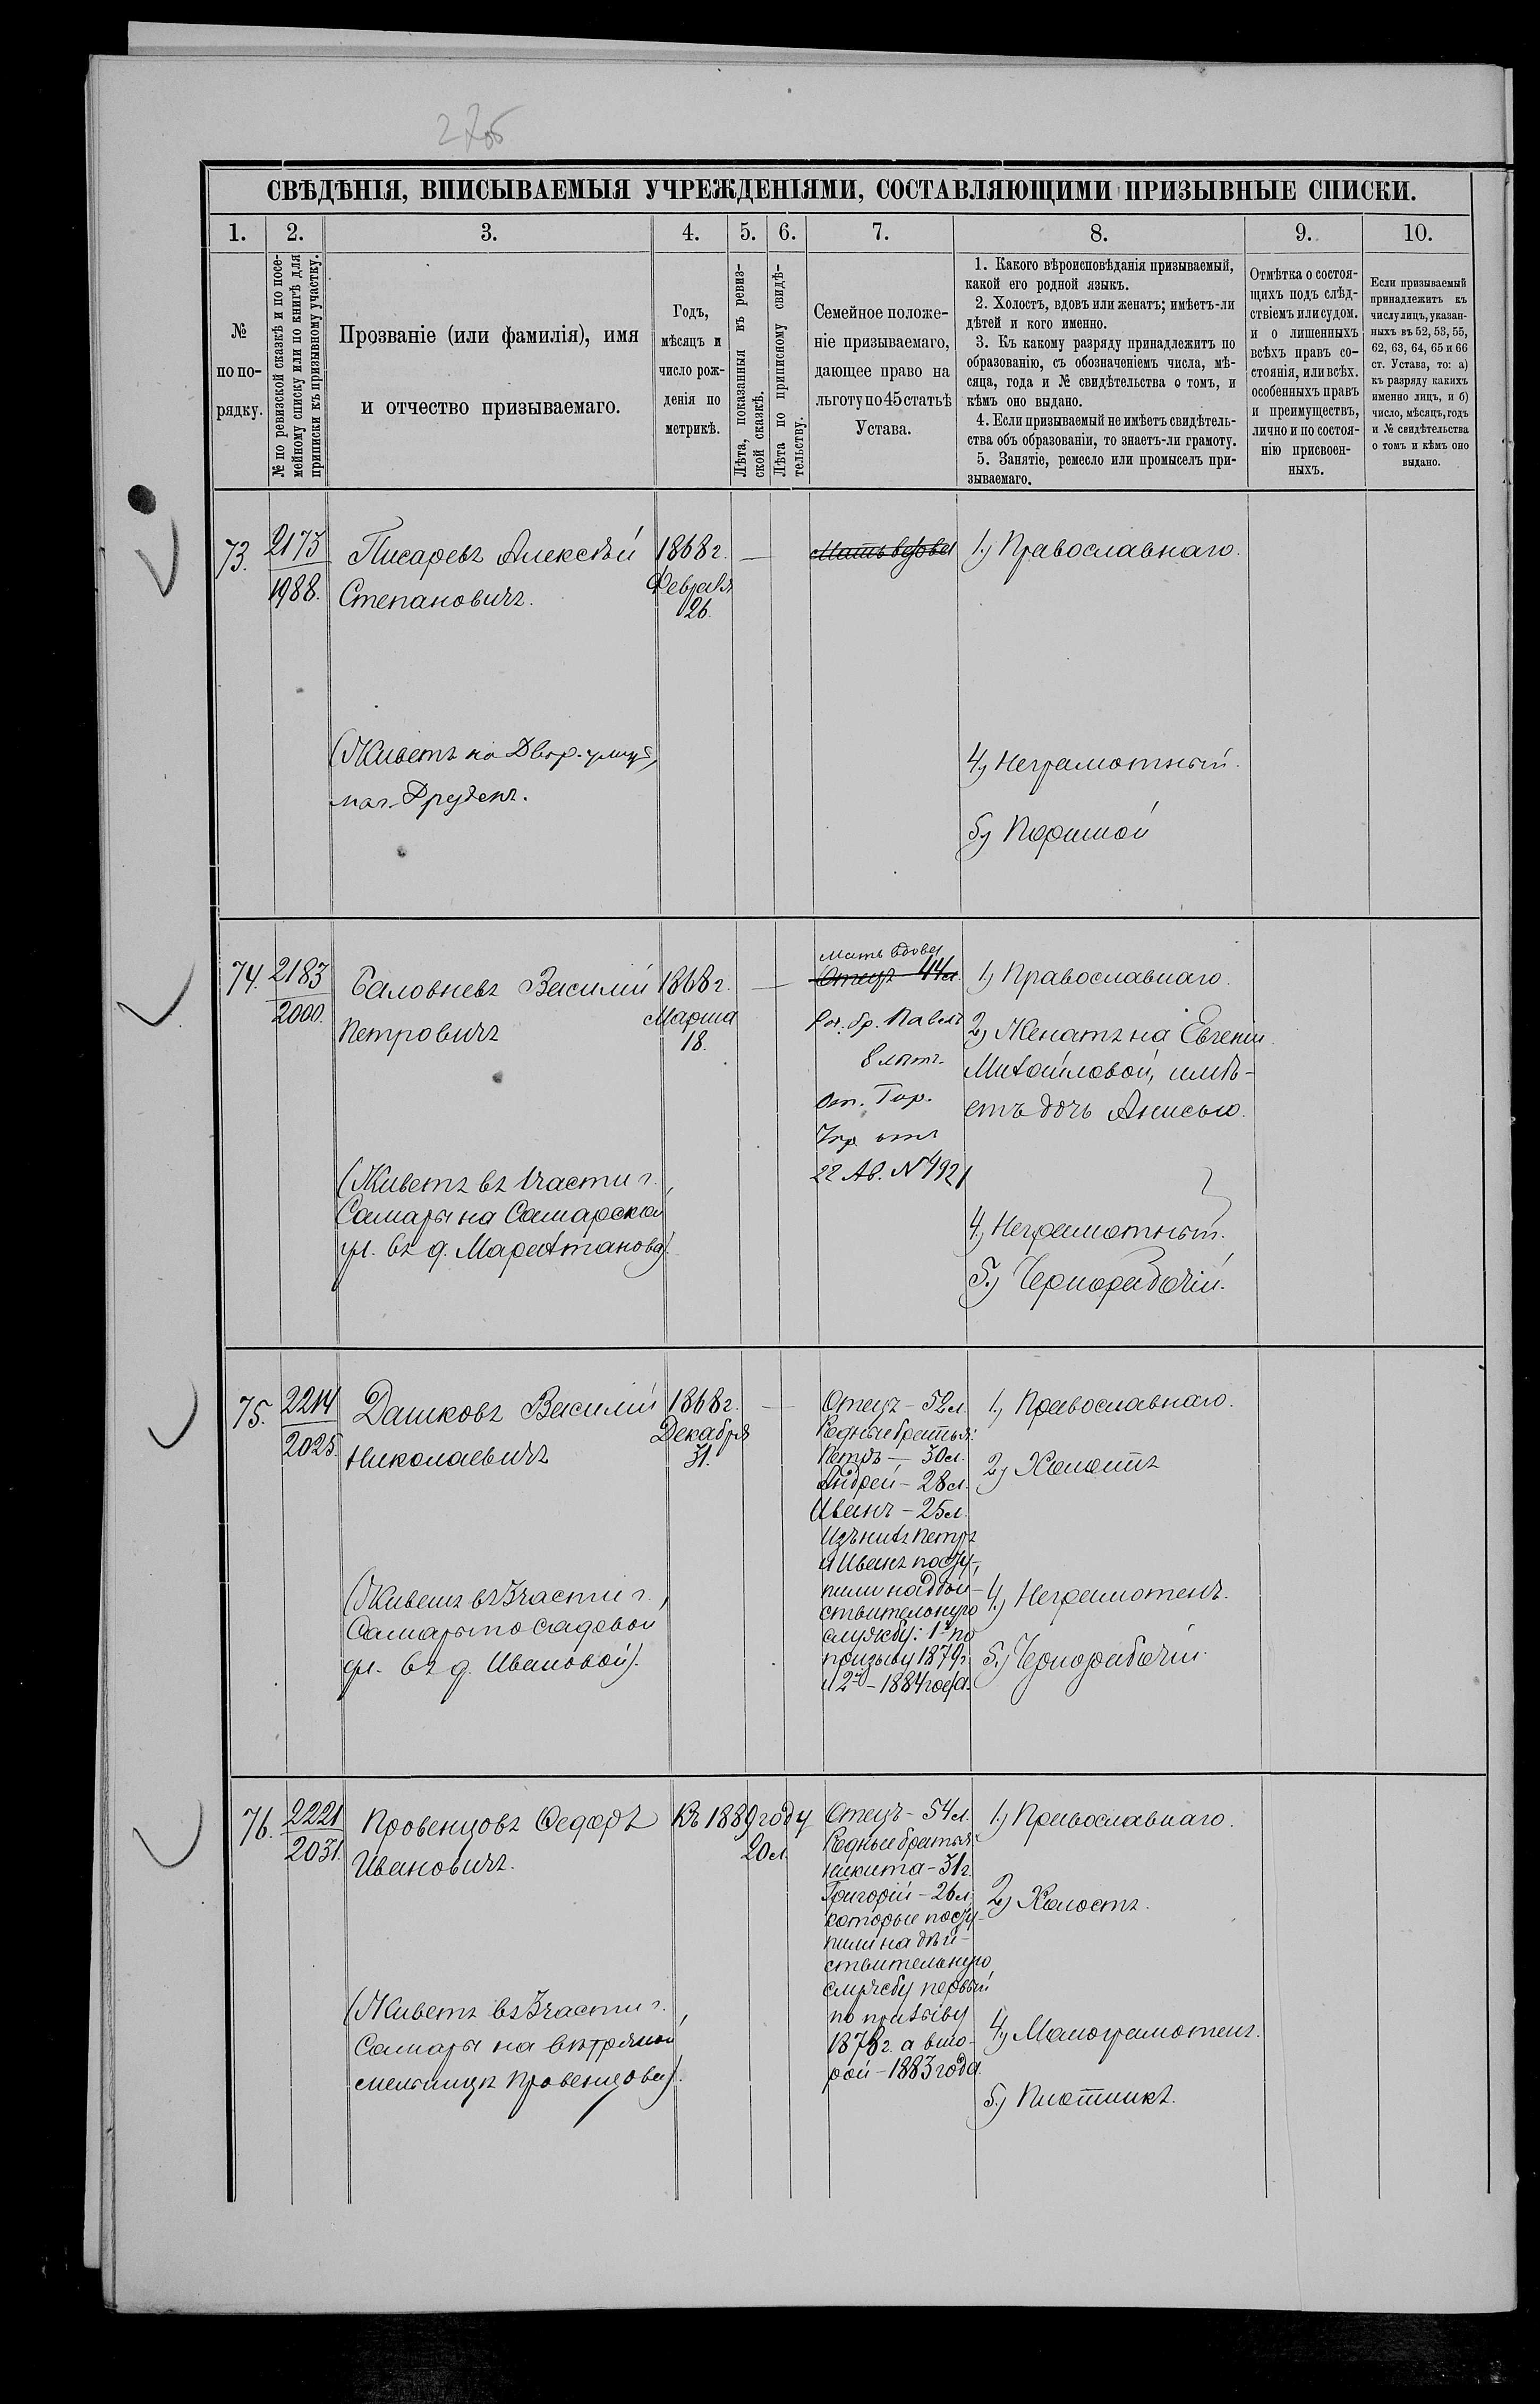 СВѢДѢНІЯ, ВПИСЫВАЕМЫЯ УЧРЕЖДЕНІЯМИ, СОСТАВЛЯЮЩИМИ ПРИЗЫВНЫЕ СПИСКИ.
1.
2.
3.
4.
5.
6.
7.
8.
9.
10.
№
по по-
рядку.
№ по ревизской сказкѣ и по посе-
мейному списку или по книгѣ для
приписки къ призывному участку.
Прозваніе (или фамилія), имя
и отчество призываемаго.
Годъ,
мѣсяцъ и
число рож-
денія по
метрикѣ.
Лѣта, показанныя въ ревиз-
ской сказкѣ.
Лѣта по приписному свидѣ-
тельству.
Семейное положе-
ніе призываемаго,
дающее право на
льготу по 45 статьѣ
Устава.
1. Какого вѣроисповѣданія призываемый,
какой его родной языкъ.
2. Холостъ, вдовъ или женатъ; имѣетъ-ли
дѣтей и кого именно.
3. Къ какому разряду принадлежитъ по
образованію, съ обозначеніемъ числа, мѣ-
сяца, года и № свидѣтельства о томъ, и
кѣмъ оно выдано.
4. Если призываемый не имѣетъ свидѣтель-
ства объ образованіи, то знаетъ-ли грамоту.
5. Занятіе, ремесло или промыселъ при-
зываемаго.
Отмѣтка о состоя-
щихъ подъ слѣд-
ствіемъ или судом.
и о лишенныхъ
всѣхъ правъ со-
стоянія, или всѣх.
особенныхъ правъ
и преимуществъ,
лично и по состоя-
нію присвоен-
ныхъ.
Если призываемый
принадлежитъ къ
числу лицъ, указан-
ныхъ въ 52, 53, 55,
62, 63, 64, 65 и 66
ст. Устава, то: а)
къ разряду какихъ
именно лицъ, и б)
число, мѣсяцъ, годъ
и № свидѣтельства
о томъ и кѣмъ оно
выдано.
73.
2173
1988.
Писаревъ Алексѣй
Степановичъ.
1868 г.
Февраля
26.
Мать вдова
1.) Православнаго.
(Живетъ на Двор. улицѣ,
4.) Неграмотный.
5.) Портной
74.
2183
2000.
Баловневъ Василій
Петровичъ
1868 г.
Марта
18.
Мать вдова
Отецъ 44 л.
Род. бр. Павелъ
8 лѣтъ.
От. Гор.
Упр. отъ
22 Ав. № 4921
1.) Православнаго.
2.) Женатъ на Евгеніи
Михайловой, имѣ-
етъ дочь Анисью.
(Живетъ въ 1 части г.
Самары на Самарской
ул. въ д. Марехтанова).
4.) Неграмотный.
5.) Чернорабочій.
75.
2214
2025.
Дашковъ Василій
Николаевичъ
1868 г.
Декабря
31.
Отецъ – 52 л.
Родные братья:
Петръ – 30 л.
Андрей – 28 л.
Иванъ – 25 л.
Изъ нихъ Петръ
и Иванъ посту-
пили на дѣй-
ствительную
службу: 1й по
призыву 1879 г.
и 2й – 1884 года.
1.) Православнаго.
2.) Холостъ
(Живетъ въ 3 части г.
Самары по Садовой
ул. въ д. Ивановой).
4.) Неграмотенъ.
5.) Чернорабочій.
76.
2221
2031.
Провенцовъ Федоръ
Ивановичъ.
Къ 1889 году
20 л.
Отецъ – 54 л.
Родные братья:
Никита – 31 г.
Григорій – 26 л.,
которые посту-
пили на дѣй-
ствительную
службу первый
по призыву
1878 г. а вто-
рой – 1883 года.
1.) Православнаго.
2.) Холостъ.
(Живетъ въ 3 части г.
Самары на вѣтряной
мельницѣ Провенцова).
4.) Малограмотенъ.
5.) Плотникъ.